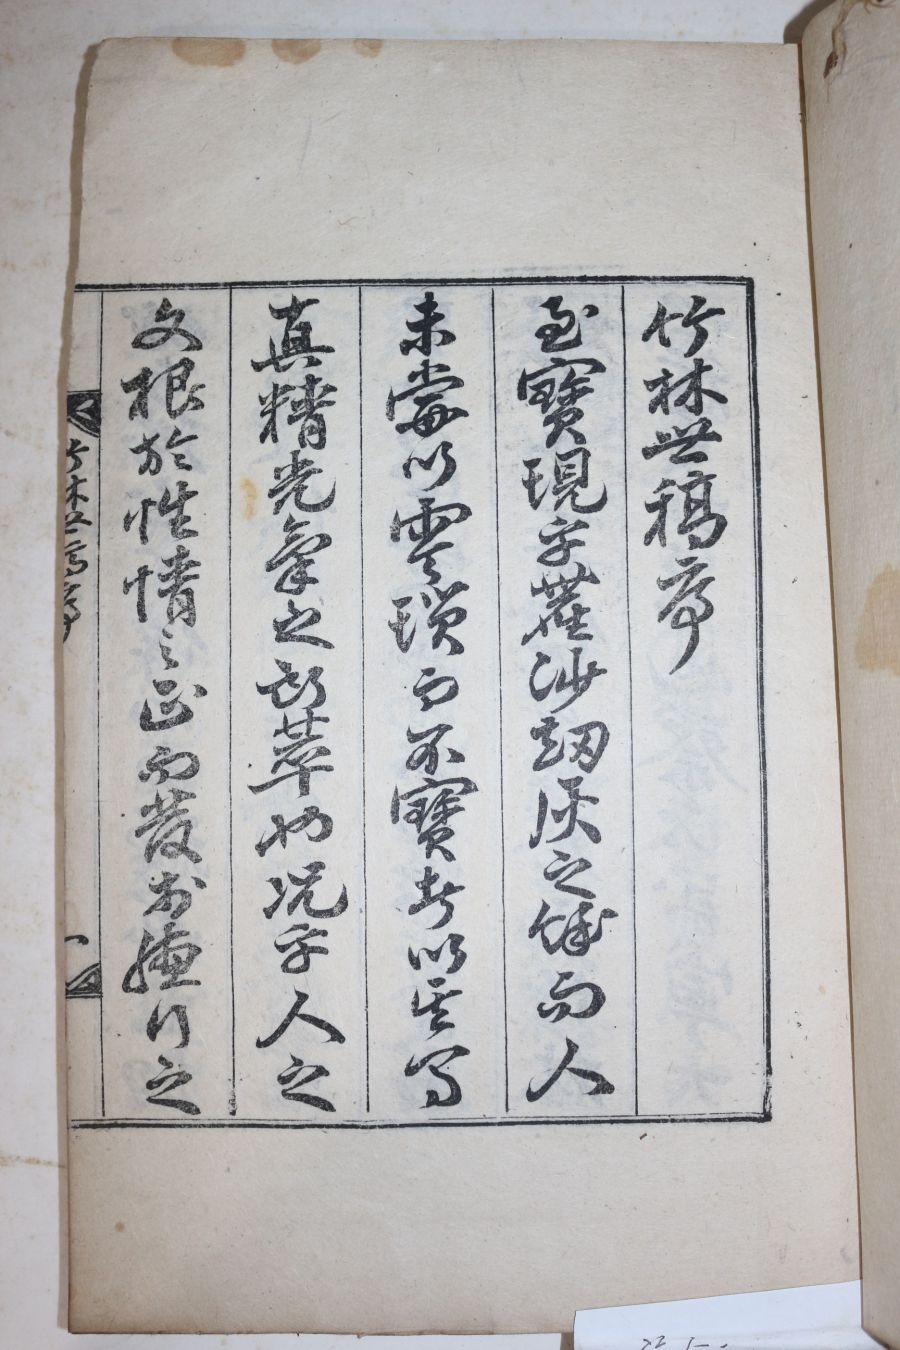 竹林世稿序
至寶現乎叢沙劫灰之餘而人
未嘗以零瑣而不寶者以其為
真精光氣之所萃也况乎人之
文根於性情之正而發於德行之
竹林世稿序
一